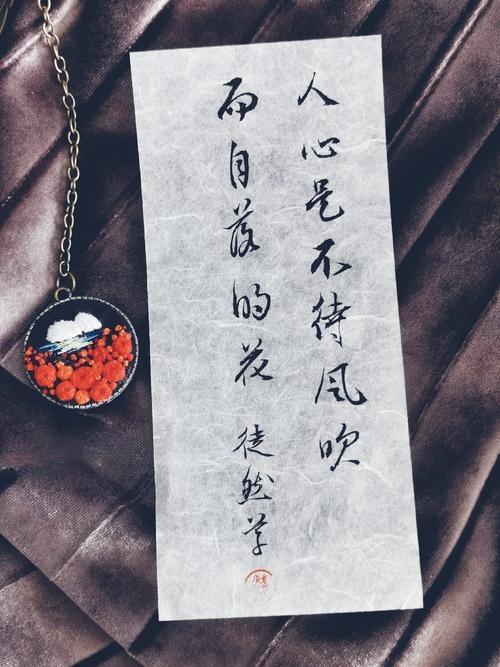 人心是不待风吹
而自落的花
徒然草